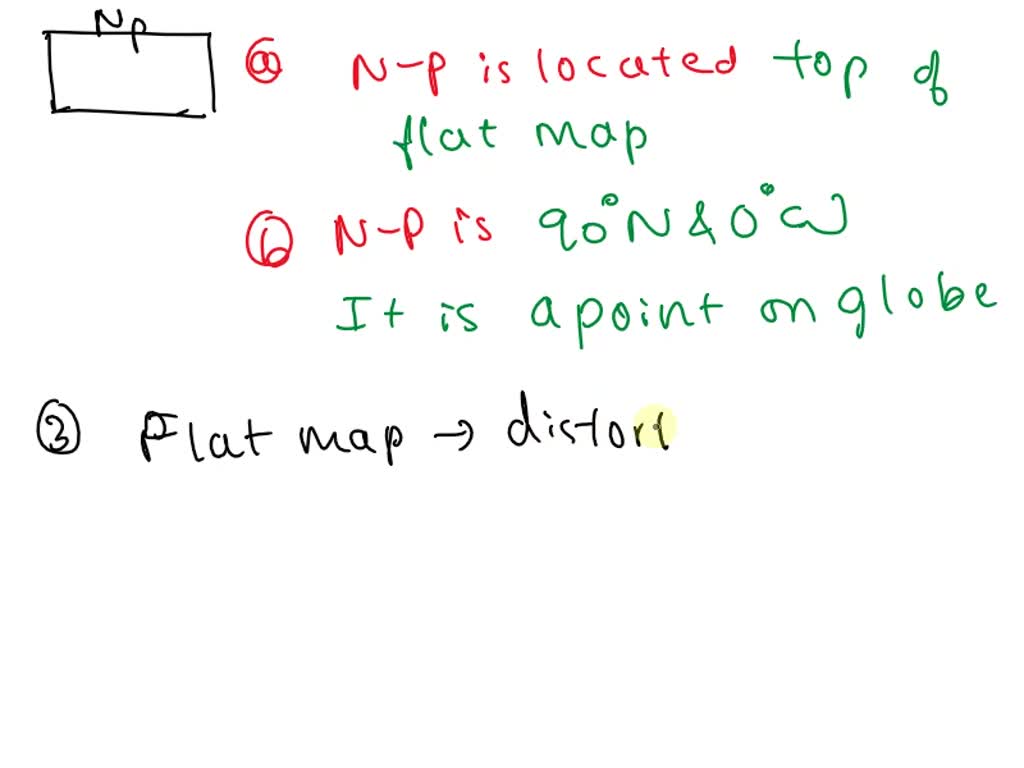 Np
ⓐ N-P is located top of
flat map
ⓑ N-P is 90°N & 0°W
It is a point on globe
③ Flat map → distort